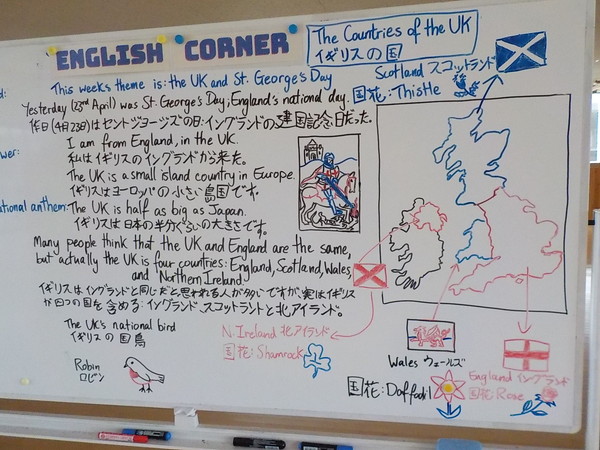 ENGLISH CORNER
This weeks theme is: the UK and St. George's Day
Yesterday (23rd April) was St. George's Day, England's national day.
昨日(4月23日)はセントジョージズの日:イングランドの建国記念日だった。
I am from England, in the UK.
私はイギリスのイングランドから来た。
The UK is a small island country in Europe.
イギリスはヨーロッパの小さい島国です。
ational anthem:
The UK is half as big as Japan.
イギリスは日本の半分ぐらいの大きさです。
Many people think that the UK and England are the same,
but actually the UK is four countries: England, Scotland, Wales,
and Northern Ireland
イギリスはイングランドと同じだと思われる人が多いですが、実はイギリス
が四つの国を含める:イングランド、スコットランドと北アイランド。
The UK's national bird
イギリスの国鳥
Robin
ロビン
The Countries of the UK
イギリスの国
Scotland スコットランド
国花: Thistle
N. Ireland 北アイランド
国花: Shamrock
Wales ウェールズ
国花: Daffodil
England イングランド
国花 Rose